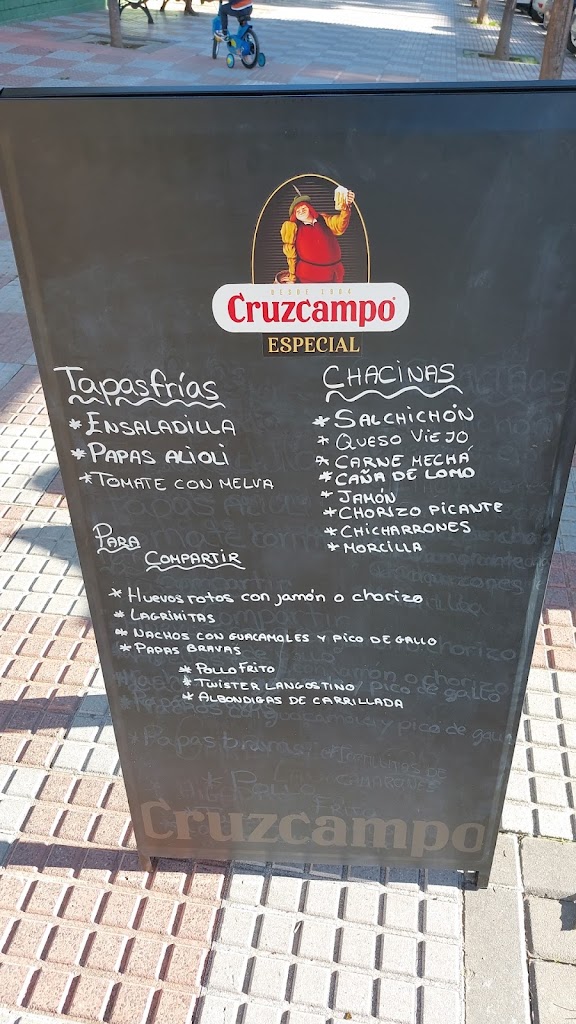 DESDE 1904
Cruzcampo
ESPECIAL
Tapas frías
* ENSALADILLA
* PAPAS ALIOLI
* TOMATE CON MELVA
CHACINAS
* SALCHICHÓN
* QUESO VIEJO
* CARNE MECHÁ
* CAÑA DE LOMO
* JAMÓN
* CHORIZO PICANTE
* CHICHARRONES
* MORCILLA
PARA
COMPARTIR
* HUEVOS ROTOS CON JAMÓN O CHORIZO
* LAGRIMITAS
* NACHOS CON GUACAMOLES Y PICO DE GALLO
* PAPAS BRAVAS
* POLLO FRITO
* TWISTER LANGOSTINO
* ALBONDIGAS DE CARRILLADA
Cruzcampo